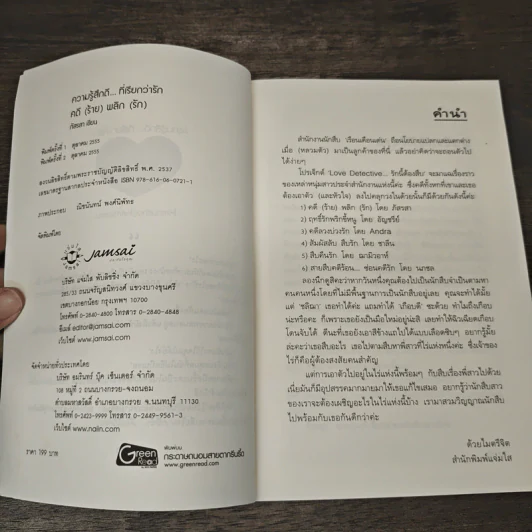 ความรู้สึกดี... ที่เรียกว่ารัก
คดี (ร้าย) พลิก (รัก)
ภัสรสา เขียน
พิมพ์ครั้งที่ 1 ตุลาคม 2555
พิมพ์ครั้งที่ 2 ตุลาคม 2555
สงวนลิขสิทธิ์ตามพระราชบัญญัติลิขสิทธิ์ พ.ศ. 2537
เลขมาตรฐานสากลประจำหนังสือ ISBN 978-616-06-0721-1
ภาพประกอบ ณิชนันทน์ พงศ์นิพัทธ
จัดพิมพ์โดย
jamsai
บริษัท แจ่มใส พับลิชชิ่ง จำกัด
285/33 ถนนจรัญสนิทวงศ์ แขวงบางขุนศรี
เขตบางกอกน้อย กรุงเทพฯ 10700
โทรศัพท์ 0-2840-4800 โทรสาร 0-2840-4848
อีเมล์ editor@jamsai.com
เว็บไซต์ www.jamsai.com
จัดจำหน่ายทั่วประเทศโดย
บริษัท อมรินทร์ บุ๊ค เซ็นเตอร์ จำกัด
108 หมู่ที่ 2 ถนนบางกรวย-จงถนอม
ตำบลมหาสวัสดิ์ อำเภอบางกรวย จ.นนทบุรี 11130
โทรศัพท์ 0-2423-9999 โทรสาร 0-2449-9561-3
เว็บไซต์ www.naiin.com
ราคา 199 บาท
Green Read
พิมพ์บน
กระดาษถนอมสายตากรีนรี้ด
www.greenread.com
คำนำ
สำนักงานนักสืบ 'เรือนเตือนเด่น' ถือนโยบายแปลกแตกต่าง
เมื่อ (หลวมตัว) มาเป็นลูกค้าของที่นี่ แล้วอย่าคิดว่าจะถอนตัวไป
ได้ง่ายๆ
โปรเจ็กต์ 'Love Detective... รักนี้ต้องสืบ' จะมาเผยเรื่องราว
ของเหล่าหนุ่มสาวประจำสำนักงานแห่งนี้ค่ะ ซึ่งคดีทั้งหกที่เขาและเธอ
ต้องเอาตัว (และหัวใจ) ลงไปคลุกวงในนั้นก็มีด้วยกันดังนี้ค่ะ
1) คดี (ร้าย) พลิก (รัก) โดย ภัสรสา
2) ฤทธิ์รักพริกขี้หนู โดย อัญชรีย์
3) คดีลวงบ่วงรัก โดย Andra
4) สัมผัสลับ สืบรัก โดย ชาลีน
5) สืบค้นรัก โดย ฌามิวอาห์
6) สายสืบคดีร้อน... ซ่อนคดีรัก โดย นภชล
ลองนึกดูสิคะว่าหากวันหนึ่งคุณต้องไปเป็นนักสืบจำเป็นตามหา
คนคนหนึ่งโดยที่ไม่มีพื้นฐานการเป็นนักสืบอยู่เลย คุณจะทำได้มั้ย
แต่ 'ชลันมา' เธอทำได้ค่ะ แถมทำได้ เกือบดี ซะด้วย ทำไมถึงเกือบ
น่ะหรือคะ ก็เพราะเธอยังเป็นมือใหม่อยู่น่ะสิ เลยทำให้ผิวเฉียดเกือบ
โดนจับได้ ดีนะที่เธอยังเอาสีข้างแถไปได้แบบเลือดซิบๆ อยากรู้มั้ย
ล่ะคะว่าเธอสืบอะไร เธอไปตามสืบหาพี่สาวที่ไร่แห่งหนึ่งค่ะ ซึ่งเจ้าของ
ไร่ก็คือผู้ต้องสงสัยคนสำคัญ
แต่การเอาตัวไปอยู่ในไร่แห่งนี้พร้อมๆ กับสืบเรื่องพี่สาวไปด้วย
เนี่ยมันก็มีอุปสรรคมากมายมาให้เธอแก้ไขเสมอ อยากรู้ว่านักสืบสาว
ของเราจะต้องเผชิญอะไรในไร่แห่งนี้บ้าง เรามาสวมวิญญาณนักสืบ
ไปพร้อมกับเธอกันดีกว่าค่ะ
ด้วยไมตรีจิต
สำนักพิมพ์แจ่มใส